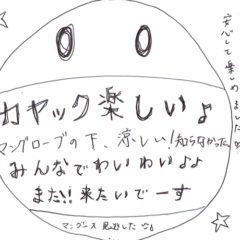 カヤック楽しい♪
マングローブの下、涼しい!知らなかった
みんなでわいわい♪♪
また!!来たいでーす
マングース 見逃した
安心して楽しめました